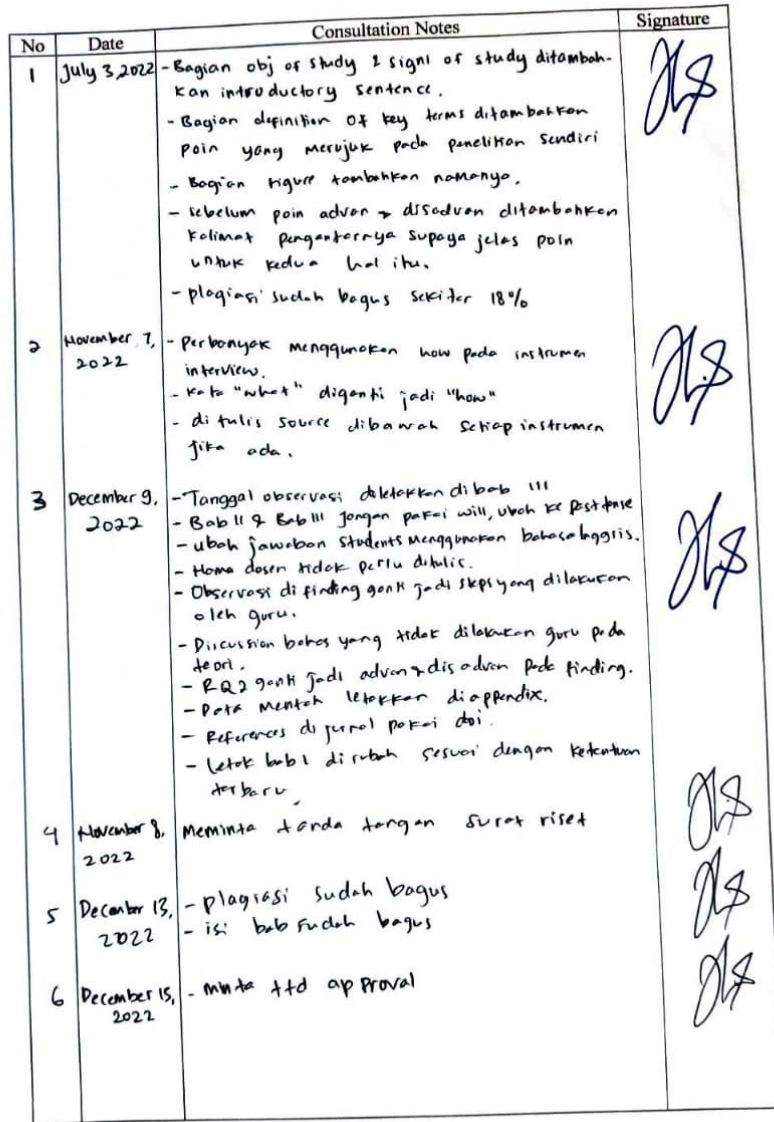 No Date Consultation Notes Signature
1 July 3, 2022 - Bagian obj of study & signi of study ditambah-
kan introductory sentence.
- Bagian definition of key terms ditambahkan
poin yang merujuk pada penelitian sendiri
- Bagian figure tambahkan namanya.
- sebelum poin advan & disadvan ditambahkan
kalimat pengantarnya supaya jelas poin
untuk kedua hal itu.
- plagiasi sudah bagus sekitar 18%
2 November, 7, - Perbanyak menggunakan how pada instrumen
2022 interview.
- kata "what" diganti jadi "how"
- di tulis source dibawah setiap instrumen
jika ada.
3 December 9, - Tanggal observasi diletakkan di bab III
2022 - Bab II & Bab III jangan pakai will, ubah ke past tense
- ubah jawaban students menggunakan bahasa Inggris.
- Nama dosen tidak perlu ditulis.
- Observasi di finding ganti jadi steps yang dilakukan
oleh guru.
- Discussion bahas yang tidak dilakukan guru pada
teori.
- RQ2 ganti jadi advan & disadvan pada finding.
- Data mentah letakkan di appendix.
- References di jurnal pakai doi.
- letak bab 1 di rubah sesuai dengan ketentuan
terbaru.
4 November 8, Meminta tanda tangan surat riset
2022
5 December 13, - plagiasi sudah bagus
2022 - isi bab sudah bagus
6 December 15, - minta ttd approval
2022